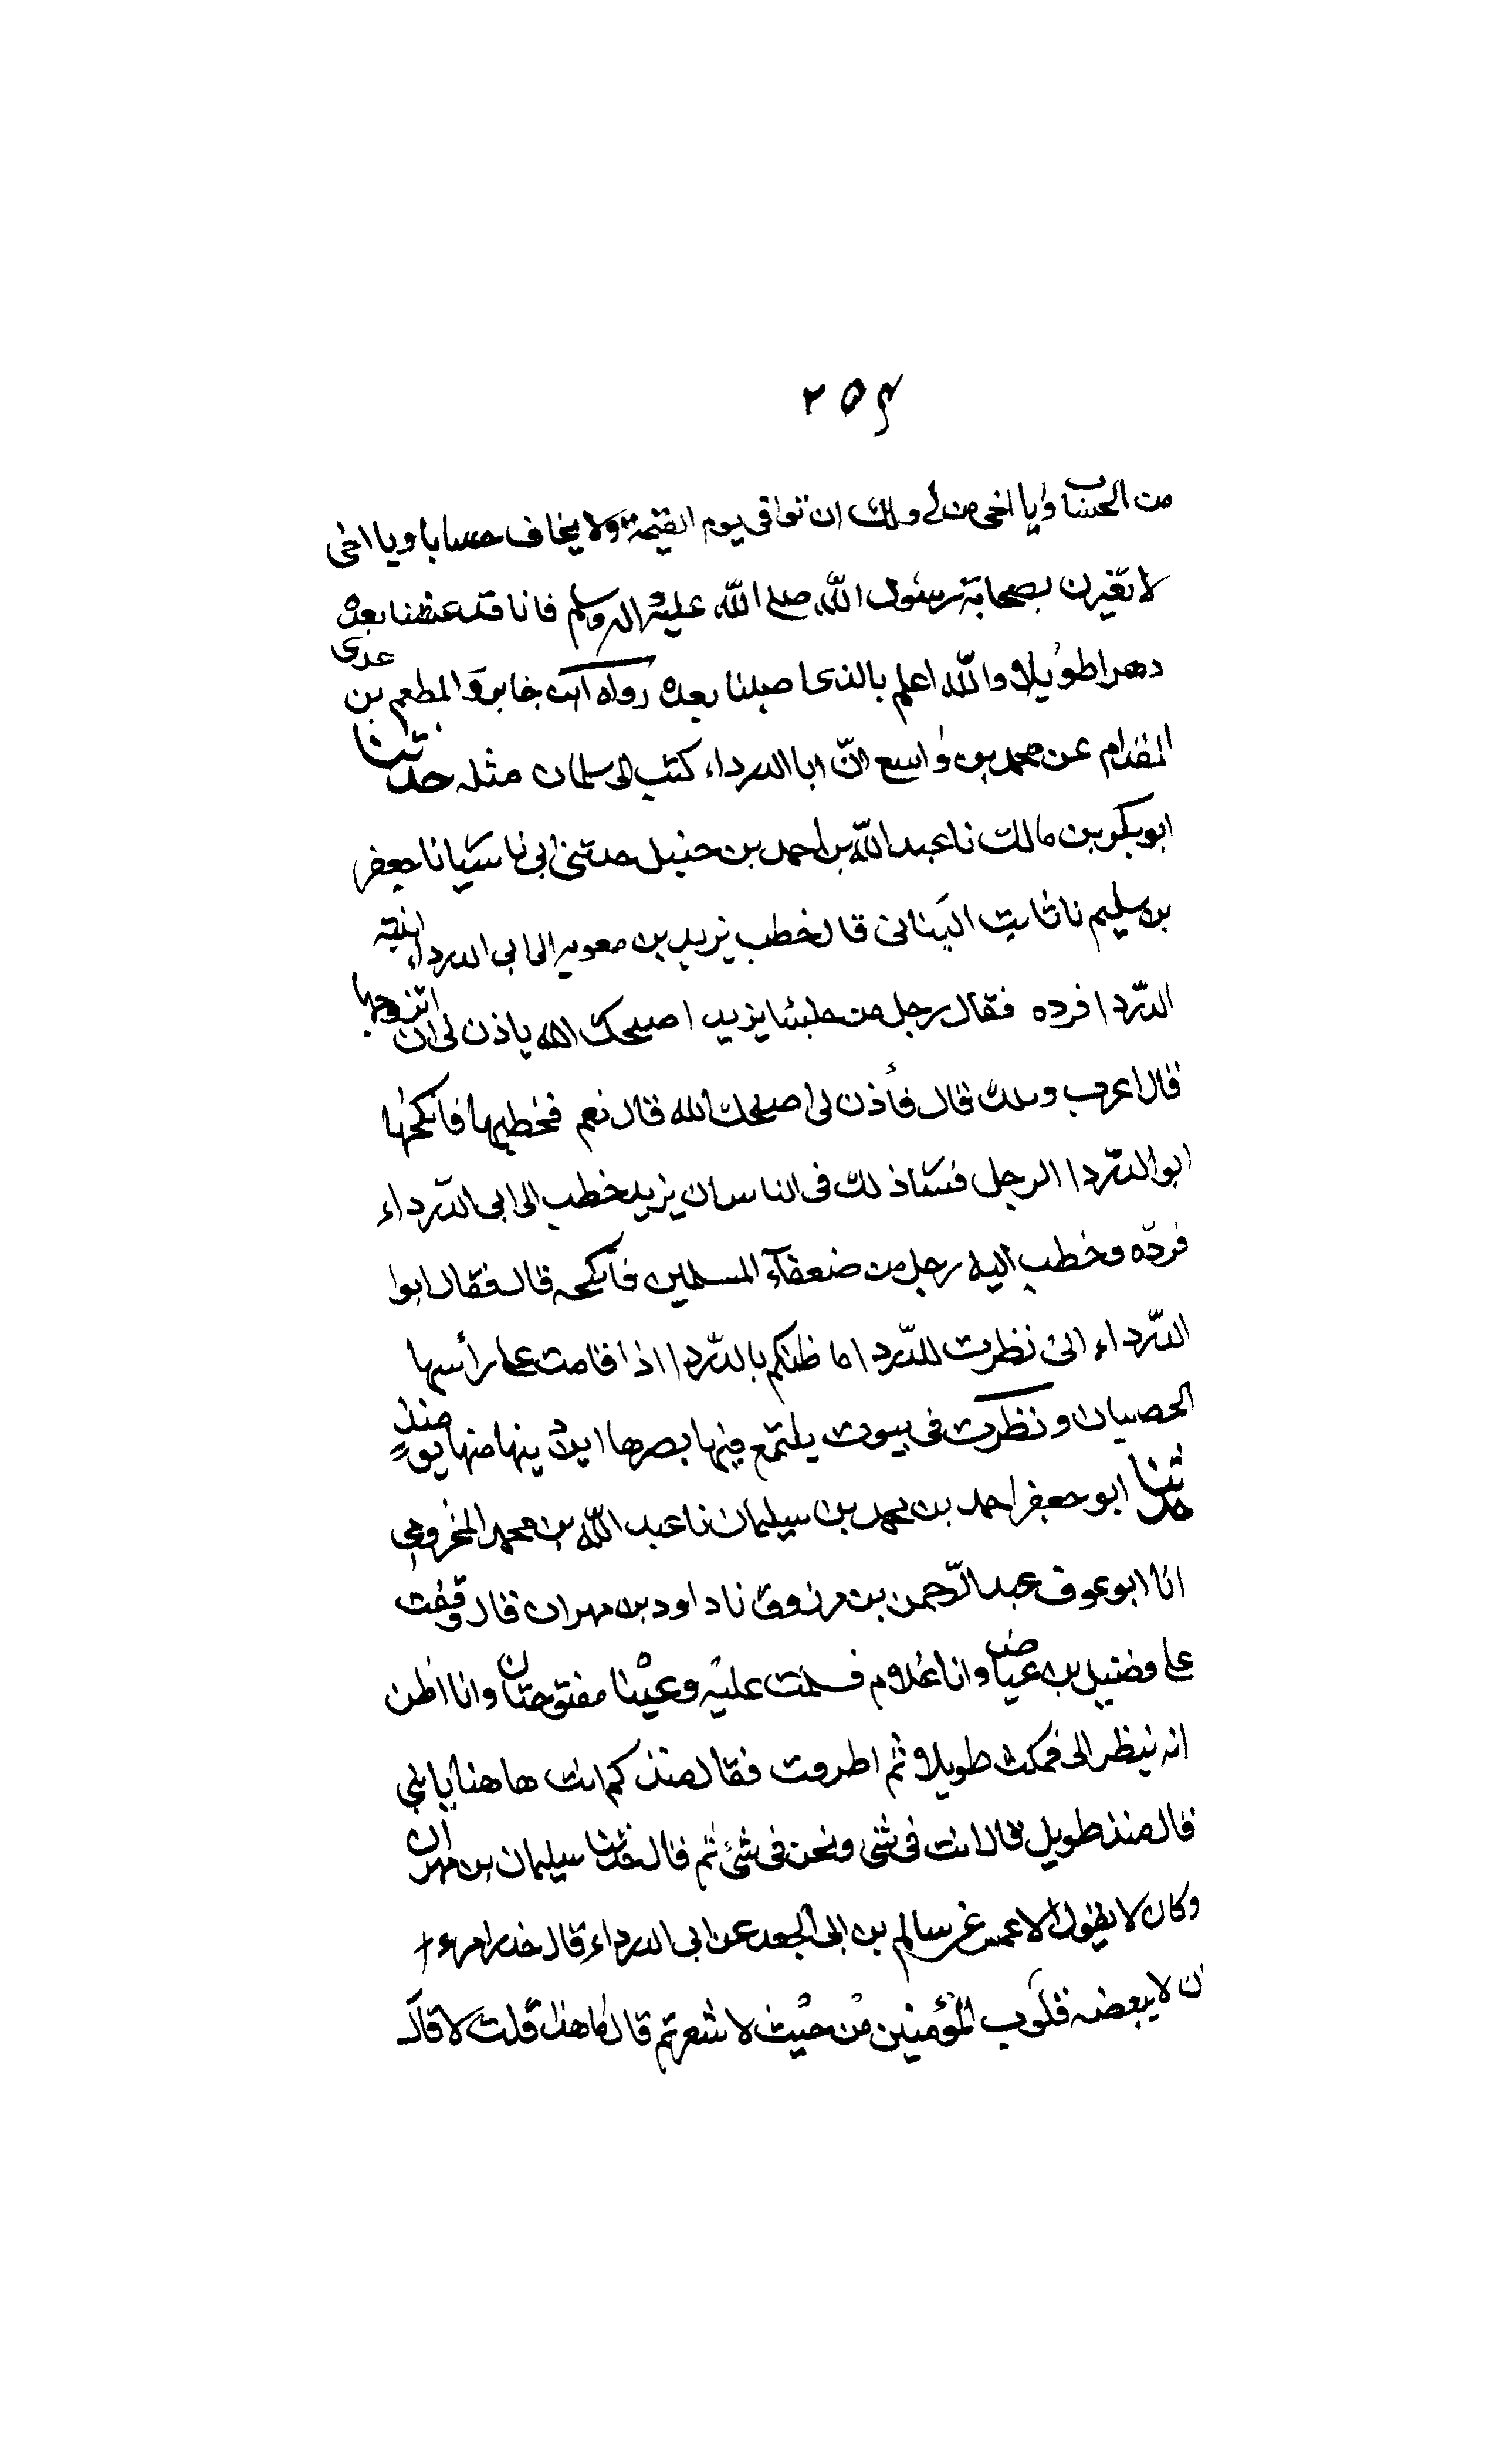 ۲۵۴
من الحساب ويا اخى من لى ولك ان نوافى يوم القيمة ولا يخاف حسابا ويا اخى
لا تغيرن بصحابة رسول الله صلى الله عليه اله وسلم فانا قد عشنا بعده
دهرا طويلا والله اعلم بالذى اصبنا بعده رواه ابن جابر والمطعم بن عدى
المقدام عن محمد بن واسع انّ ابا الدرداء كتب الى سلمان مثله حدثنا
ابو بكر بن مالك نا عبد الله بن احمد بن حنبل حدثنى ابى نا سيار نا جعفر
بن سليم نا ثابت البنانى قال خطب يزيد بن معويه الى ابى الدرداء ابنته
الدّردا فرده فقال رجل من جلساء يزيد اصلحك الله ياذن لى ان اتزوجها
قال اعرب ويلك قال فأذن لى اصلحك الله قال نعم فخطبها فانكحها
ابو الدّردا الرجل فسار ذلك فى الناس ان يزيد خطب الى ابى الدّرداء
فردّه وخطب اليه رجل من ضعفاء المسلمين فانكحه قال فقال ابوا
الدّرداء انى نظرت للدّردا ما ظنكم بالدّردا اذا قامت على رأسها
الخصيان ونظرت فى بيوت يلتمع فيها بصرها اين دينها منها يومئذ
حدثنا ابو جعفر احمد بن محمد بن سليمان نا عبد الله بن محمد المخزومى
انا ابو عوف عبد الرّحمن بن مرزوق نا داود بن مهران قال وقفت
على فضيل بن عياض وانا غلام فسلمت عليه وعينا مفتوحتان وانا اظن
انه ينظر الى فمكث طويلا ثم اطرق فقال منذ كم انت هاهنا يا بنى
قال منذ طويل قال انت فى شى ونحن فى شئ ثم قال حدثنا سليمان بن مهران
وكان لا يقول الاعمش عن سالم بن ابى الجعد عن ابى الدرداء قال حذر امرء
ان لا يبغضه قلوب المؤمنين من حيث لا شعر ثم قال ما هذا قلت لا قال